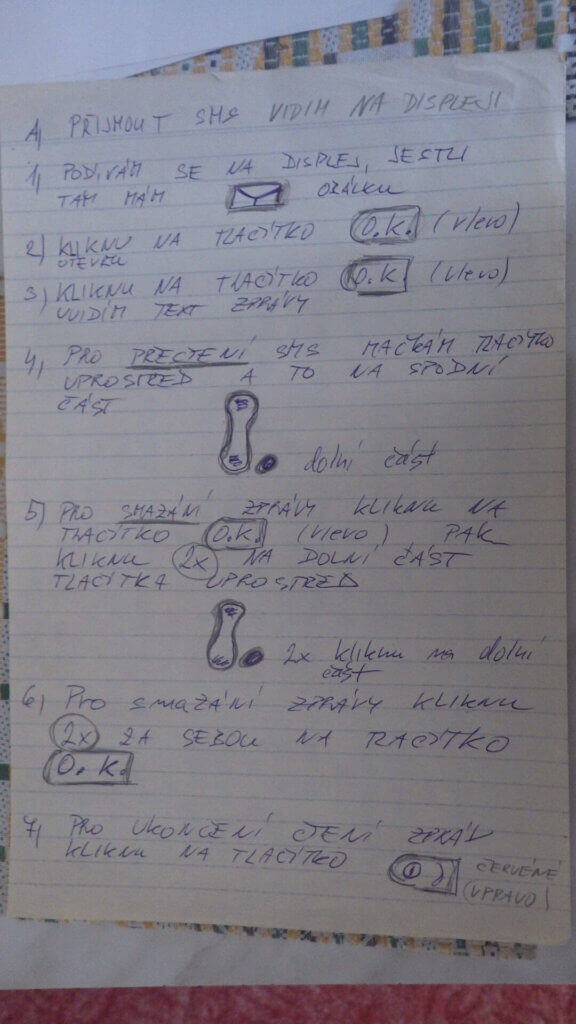 A) PŘIJMOUT SMS VIDIM NA DISPLEJI
1) PODÍVÁM SE NA DISPLEJ, JESTLI
TAM MÁM OBÁLKU
2) KLIKNU NA TLAČÍTKO O.K. (vlevo)
OTEVŘU
3) KLIKNU NA TLAČÍTKO O.K. (vlevo)
UVIDÍM TEXT ZPRÁVY
4) PRO PŘEČTENÍ SMS MAČKÁM TLAČÍTKO
UPROSTŘED A TO NA SPODNÍ
ČÁST
dolní část
5) PRO SMAZÁNÍ ZPRÁVY KLIKNU NA
TLAČÍTKO O.K. (vlevo) PAK
KLIKNU 2x NA DOLNÍ ČÁST
TLAČÍTKA UPROSTŘED
2x kliknu na dolní
část
6) Pro SMAZÁNÍ ZPRÁVY KLIKNU
2x ZA SEBOU NA TLAČÍTKO
O.K.
7) PRO UKONČENÍ ČTENÍ ZPRÁV
KLIKNU NA TLAČÍTKO ČERVENÉ
(VPRAVO)